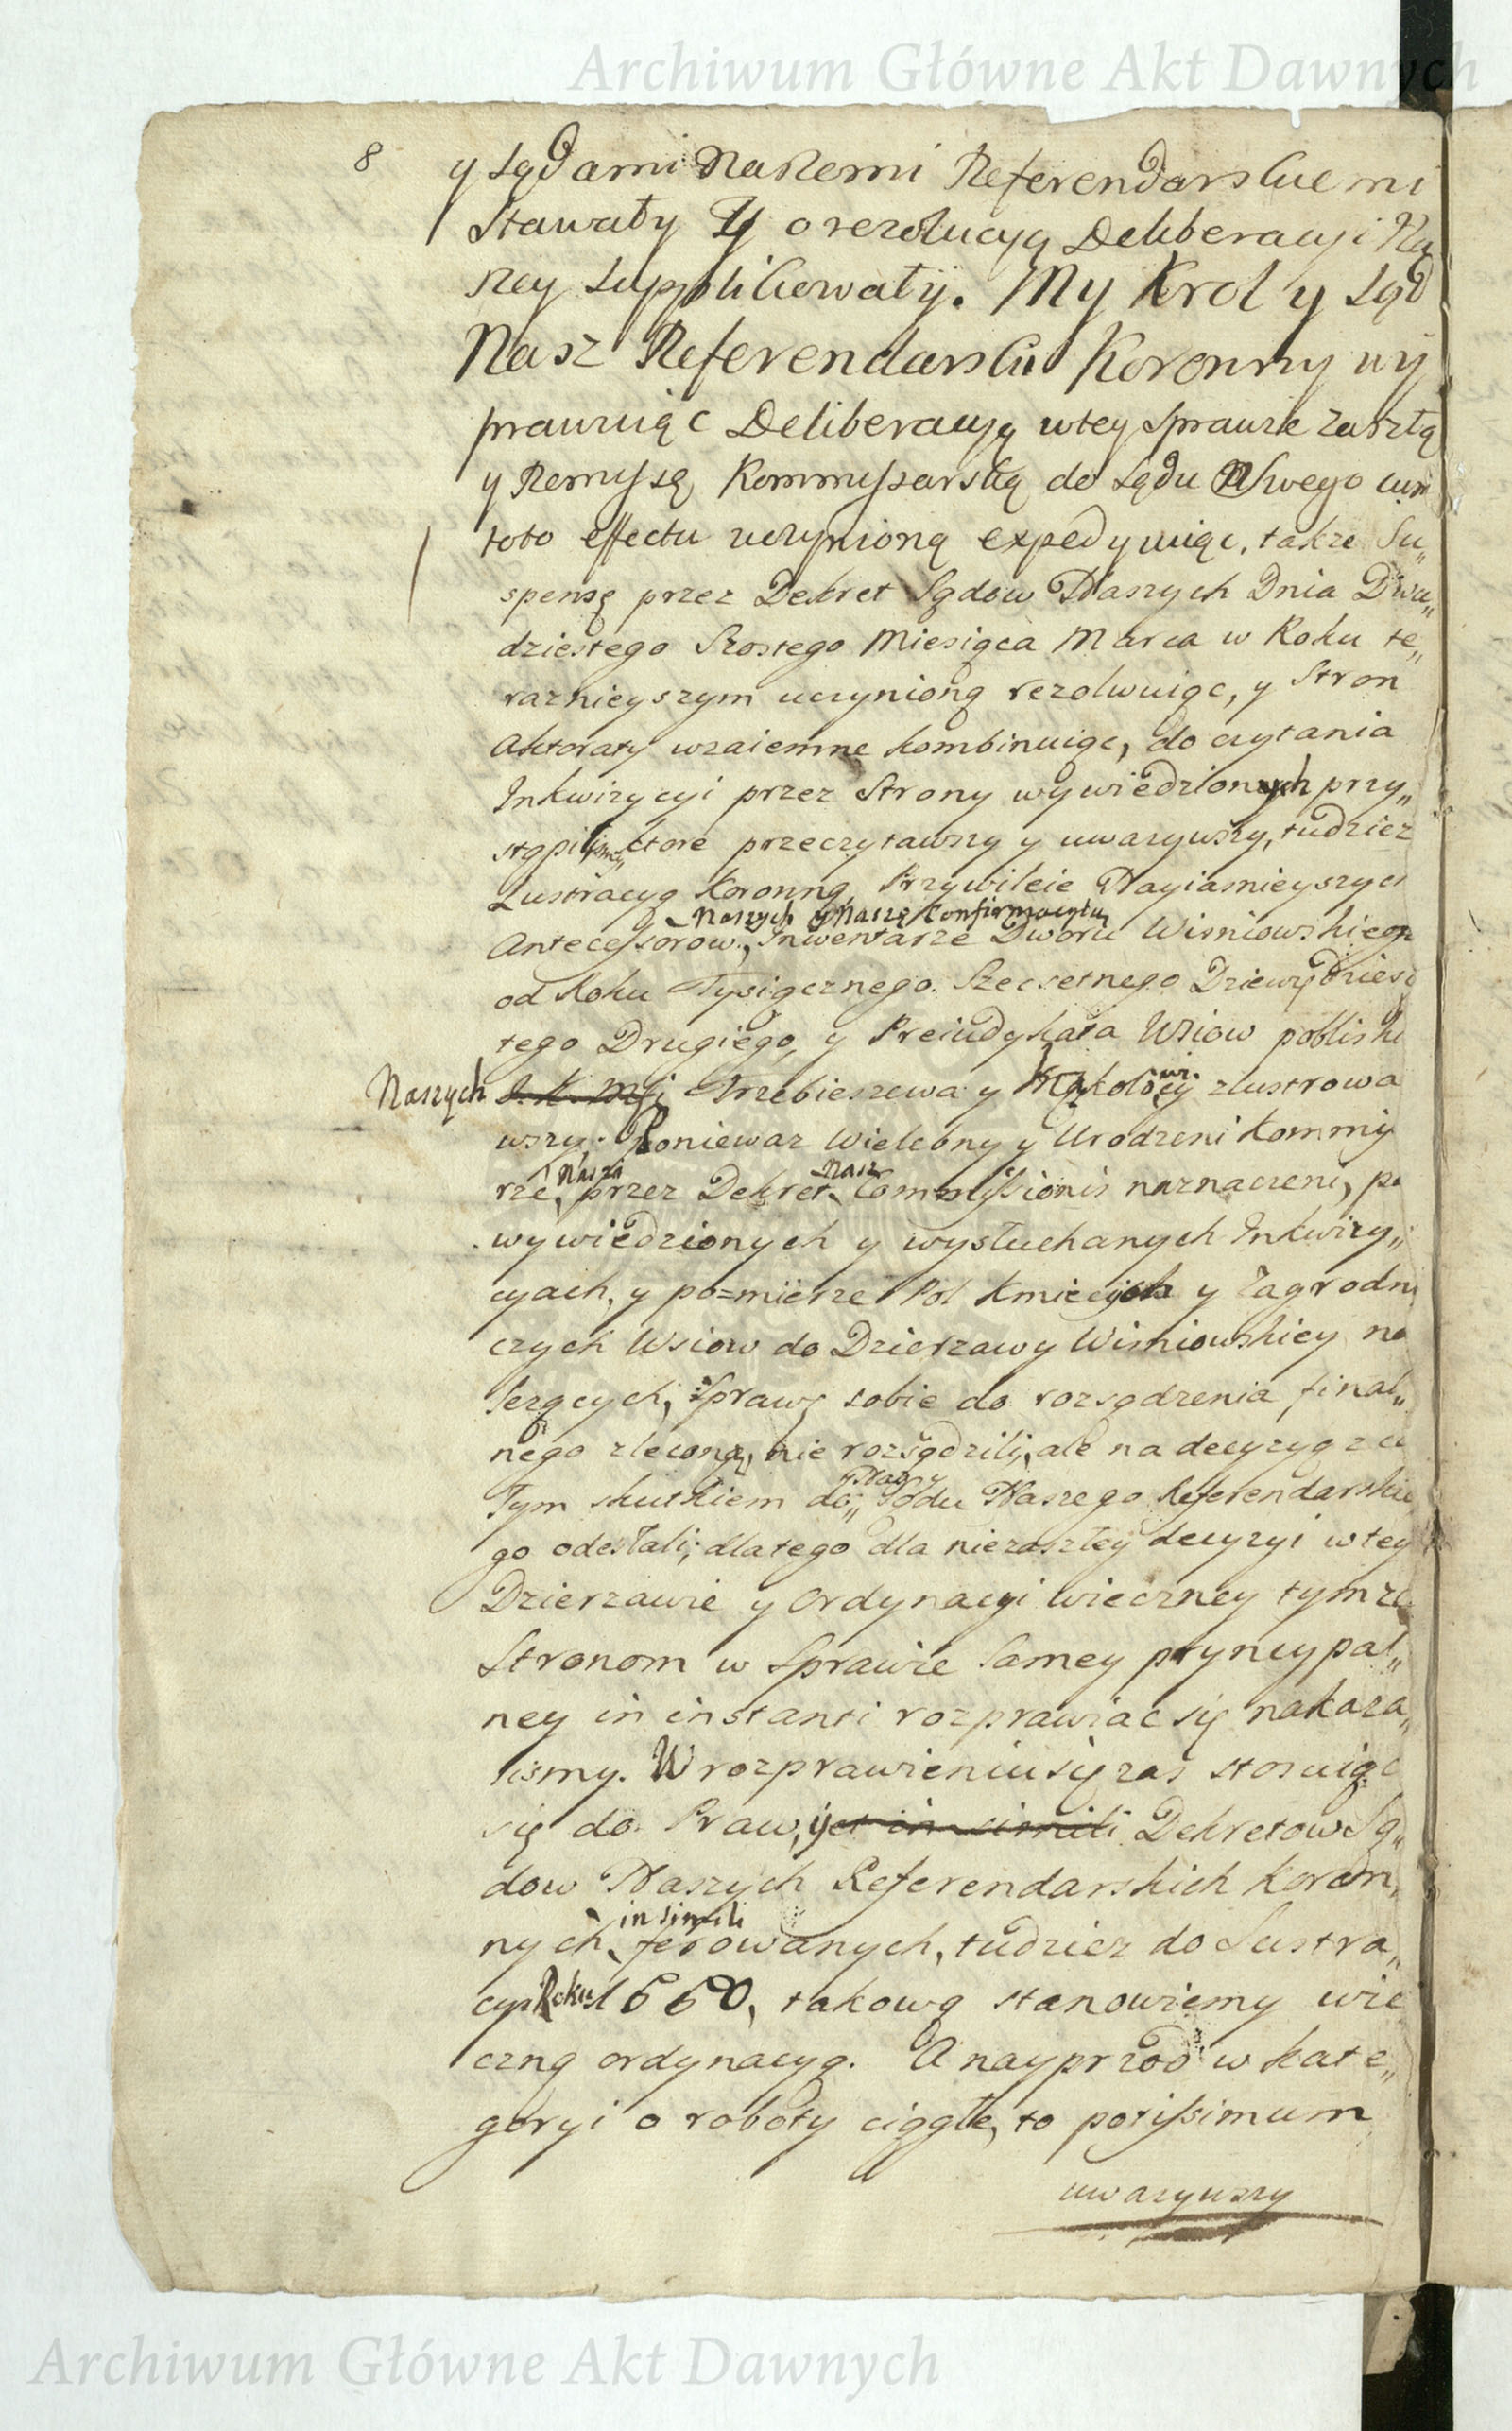 Archiwum Główne Akt Dawnych
8
y sądami Naszemi Referendarskiemi
Stawały y o rezolucyą Deliberacyi Na
szey supplikowały. My Krol y sąd
Nasz Referendarski Koronny wy
prawuiąc Deliberacyą w tey Sprawie zaszłą
y Remyssą Kommyssarską do sądu Swego cum
toto effectu uczynioną expedyuiąc, także Su„
spensę przez Dekret Sądow Naszych Dnia Dwu„
dziestego Szostego Miesiąca Marca w Roku te„
raznieyszym uczynioną rezolwuiąc, y Stron
Aktoraty wzaiemne kombinuiąc, do czytania
Inkwizycyi przez Strony wywiedzionych przy„
stąpilismy ktore przeczytawszy y uwarzywszy, tudziez
Lustracyą Koronną, Przywileie Nayiasnieyszych
Naszych y Naszę Confirmacyią
Antecessorow, Inwentarze Dworu Wisniowskiego
od Roku Tysiącznego Szecsetnego Dziewędzies
tego Drugiego, y Preiudykata Wsiow poblisk
Naszych J. K. Mci Trzebieszewa y Kąkolowcy zlustrowa
wszy. Poniewaz Wielebny y Urodzeni Kommis
Nasza Nasz
rze, przez Dekret Commissionis naznaczeni, po
wywiedzionych y wysłuchanych Inkwizy„
cyach, y po=mierze Pol Kmiecych y Zagrodni
czych Wsiow do Dzierzawy Wisniowskiey na
lezących, Sprawę sobie do rozsądzenia final„
nego zleconą, nie rozsądzili, ale na decyzyą z u
Tym skutkiem do Sądu Naszego Referendarskie
go odesłali, dlatego dla niezaszłey decyzyi w tey
Dzierzawie y Ordynacyi wieczney tymze
Stronom w Sprawie Samey pryncypal„
ney in instanti rozprawiac się nakaza„
lismy. W rozprawieniu się zas stosuiąc
się do Praw, y et in simili Dekretow Są„
dow Naszych Referendarskich Koron„
in simili
nych, ferowanych, tudziez do Lustra„
cyi Roku 1660, takową stanowiemy wie
czną ordynacyą. A nayprzod w kate„
goryi o roboty ciągłe, to potissimum
uwarzywszy
Archiwum Główne Akt Dawnych